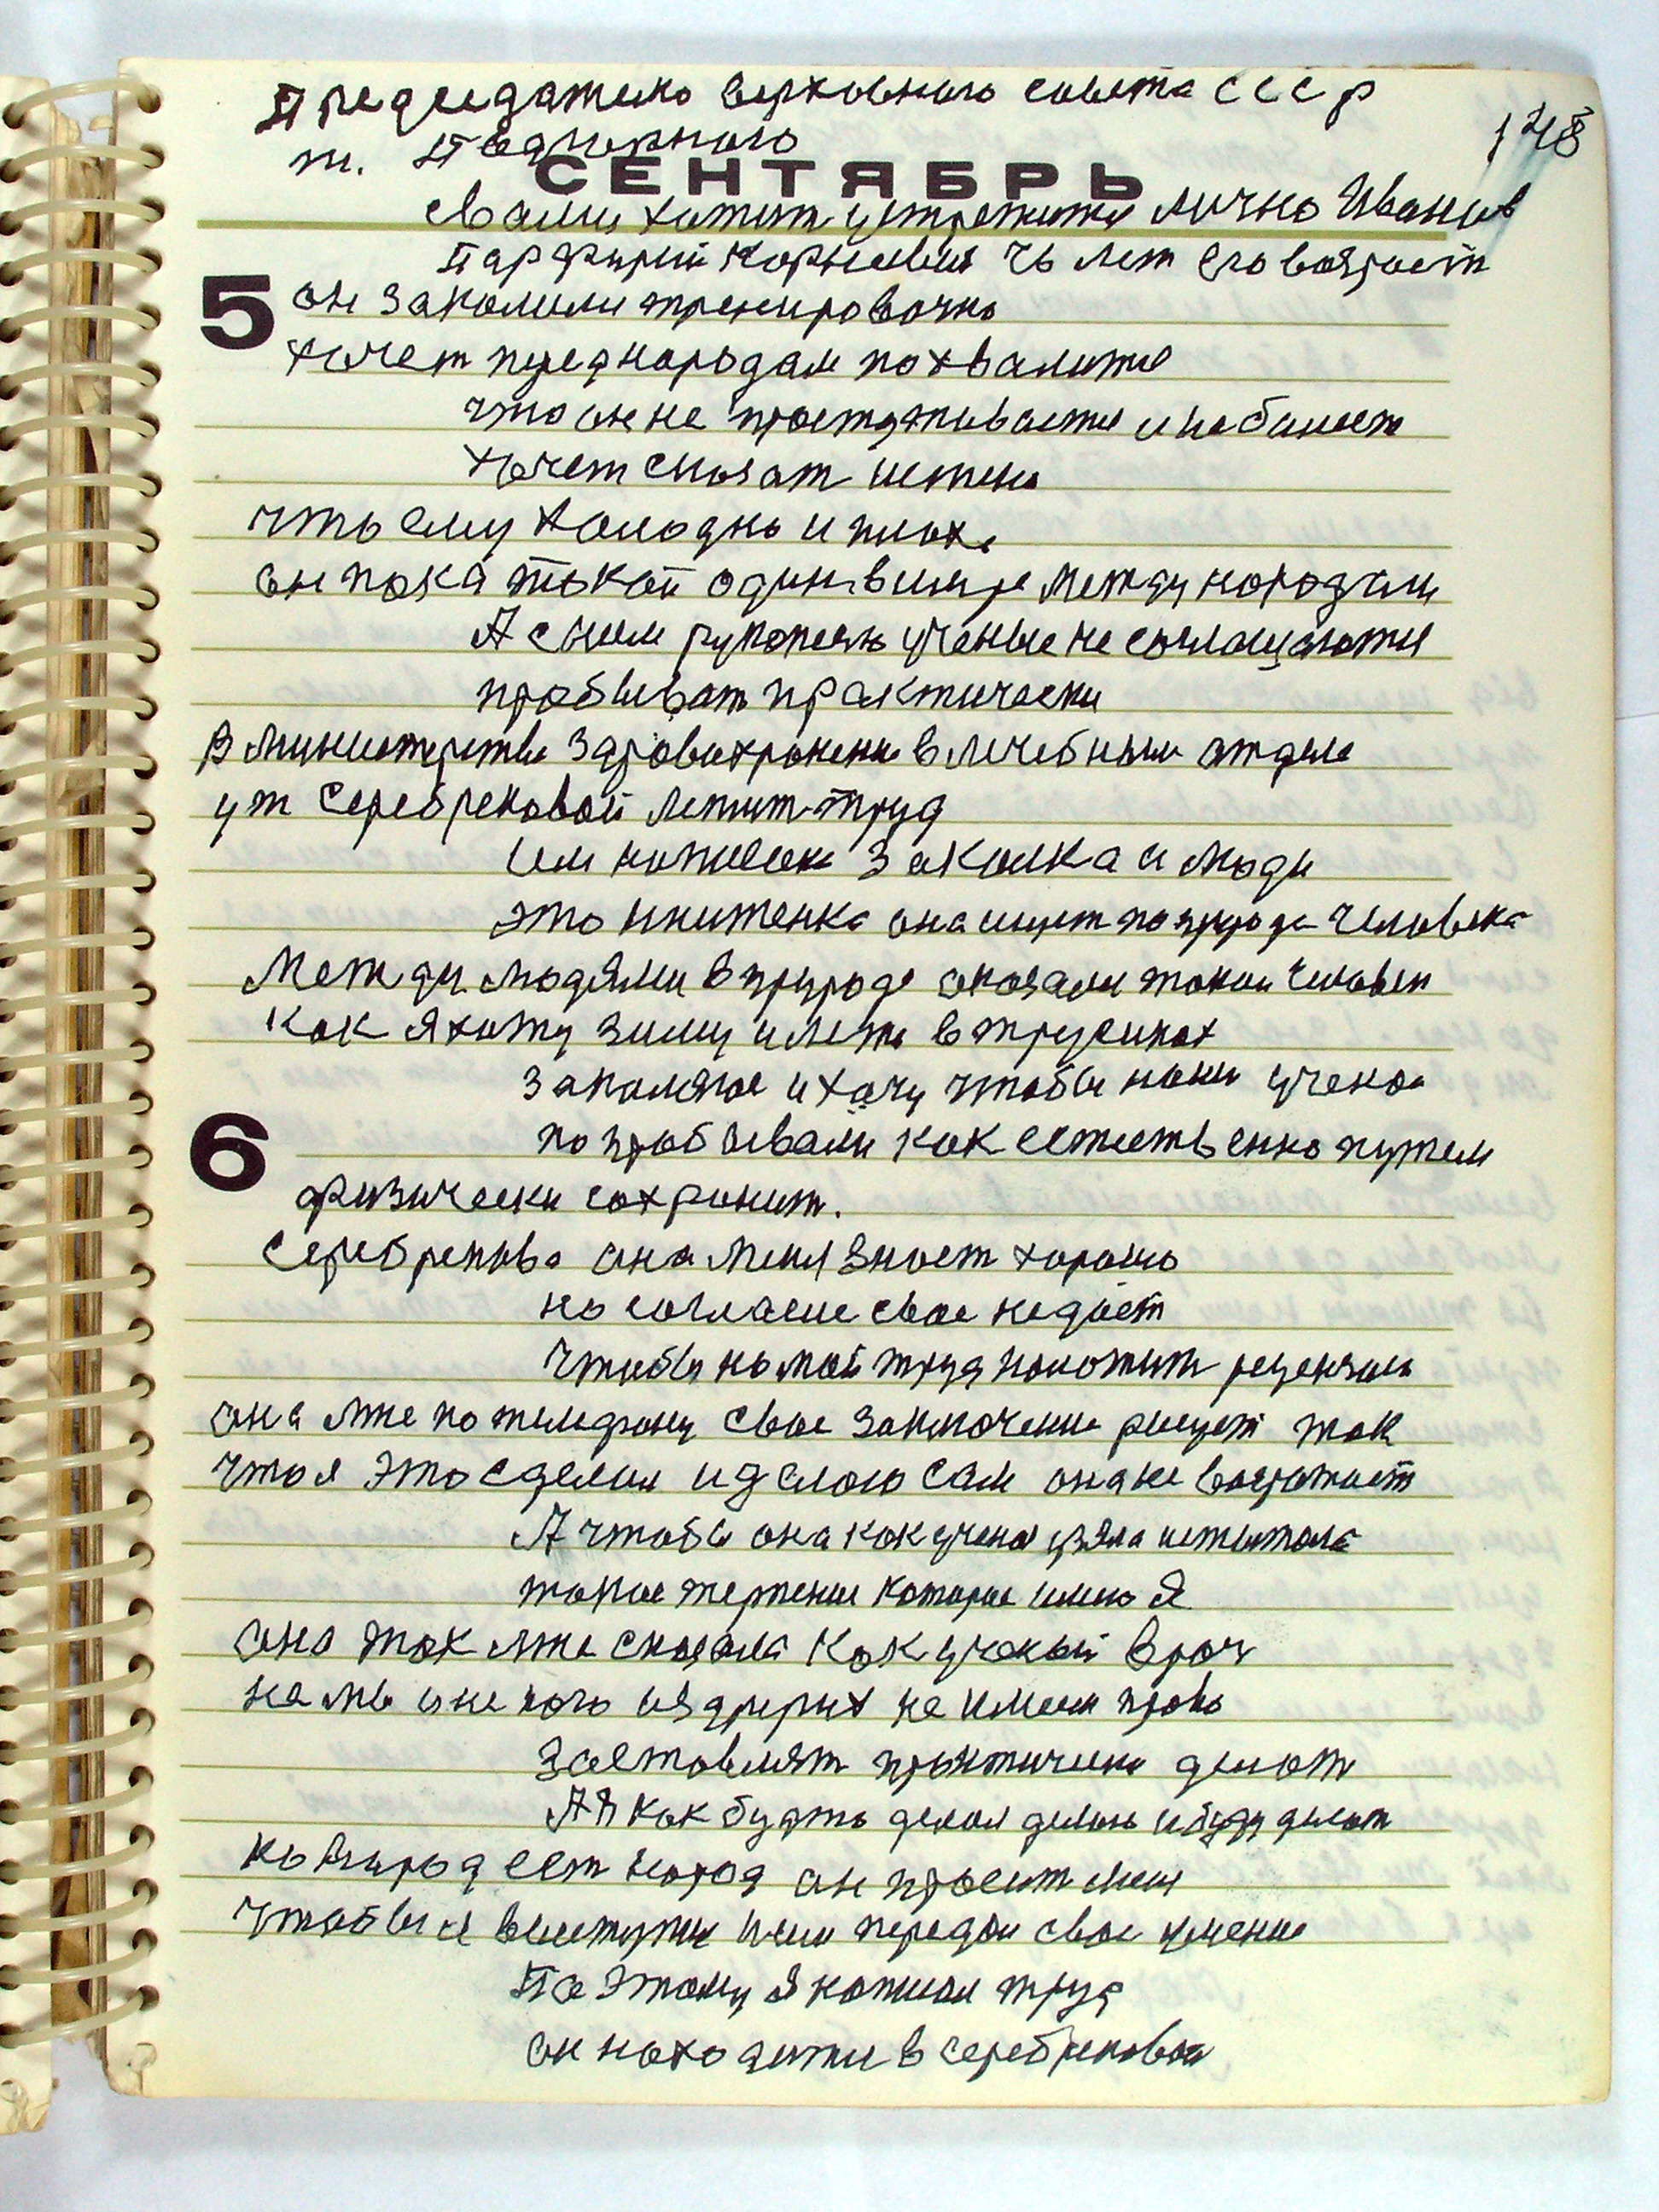 Председателю верховного совета СССР
148
т. Подгорного
СЕНТЯБРЬ
Свами хотит устретится лично Иванов
Парфирий Корнеевия 76 лет его возраст
5
он закалили тренировочно
хочет переднародам похвалится
что он не простуживается и не болеет
хочет сказат истено
что ему холодно и плохо
он пока такой один в мире между народам
А с ним рукопеся ученые не соглашаются
пробыват практически
В министерстве здравохранение в лечебным отделе
ут Серебрековой лежит труд
Им написан закалка и люди
это книженка она ищет по природе человека
Между людями в природе сказали такой человек
как я хожу зиму и лето в трусиках
закаляюс и хочу чтобы наши учено
попробывали как естественно путем
6
физически сохронит.
Серебрекова она меня знает хорошо
но согласие свое не дает
чтобы на мой труд положит рецензию
она мне по телефону свое заключение рисует так
что я это сделал и делаю сам она не возрожает
А чтобы она как учена узяла испытала
такое терпение которое имею Я
она так мне сказала как ученый врач
на мь и не кого из других не имеем право
заставлят практически делат
А Я как будто делал делаю и буду делат
но вприрод ест народ он просит меня
чтобы я выступил и им передал свое умение
По этому я написал труд
он находится в серебрековой